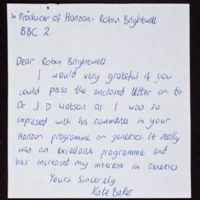 To Producer of Horizon - Robin Brightwell
BBC 2.
Dear Robin Brightwell
I would very grateful if you
could pass the enclosed letter on to
Dr J D Watson as I was so
impressed with his comments in your
Horizon programme on genetics. It really
was an excellent programme and
has increased my interest in genetics
Yours Sincerely
Kate Baker